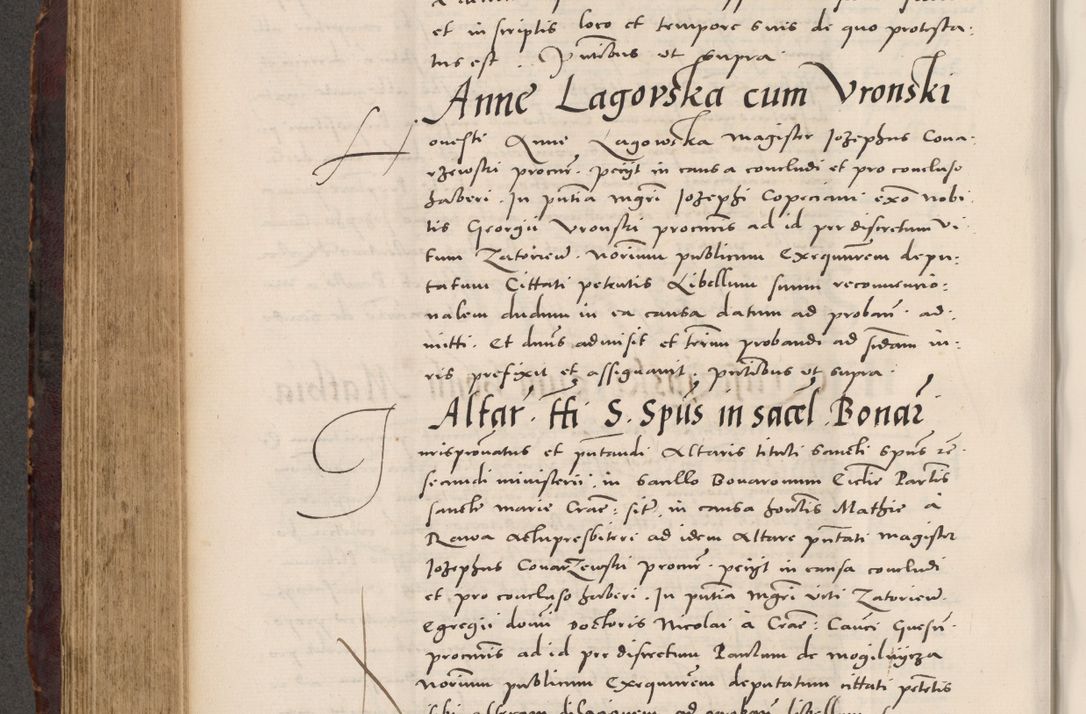 et in scriptis loco et tempore suis de quo protesta:
tus est . Pntibus ut supra
Anne Lagovska cum Vronski
Honeste Anne Lagowska magister Jozephus Cona:
rzewski procur. petijt in causa concludi et pro concluso
haberi . In pntia mgri Jozephi Copeciani exo nobi:
lis Georgii Vronski procuris ad id per discretum Vi:
tum Zatoriew. norium publicum Exequurem depu:
tatum Cittati petentis Libellum suum reconventio:
nalem dudum in ea causa datum ad proban. ad:
mitti . Et dnus admisit et terum probandi ad sedam iu:
ris prefixit et assignavit . pntibus ut supra.
Altar. tti S. Spus in sacel Bonar
Jurispronatus et pntandi Altaris tituli sancti Spus re
secundi ministerii in sacello Bonaronum Ecclie Partis
sancte marie Crac: sit. in causa honstis Mathie a
Rawa Alupresbiteri ad idem Altare pntati magister
Jozephus Conarzewski procur. petijt in causa concludi
et pro concluso haberi. In pntia mgri Viti Zatoriew.
Egregii domi Doctoris Nicolai a Crac: Canci Guesn.
procuris ad id per discretum Paulum de mogilnycza
norium publicum Exequurem deputatum cittati petentis